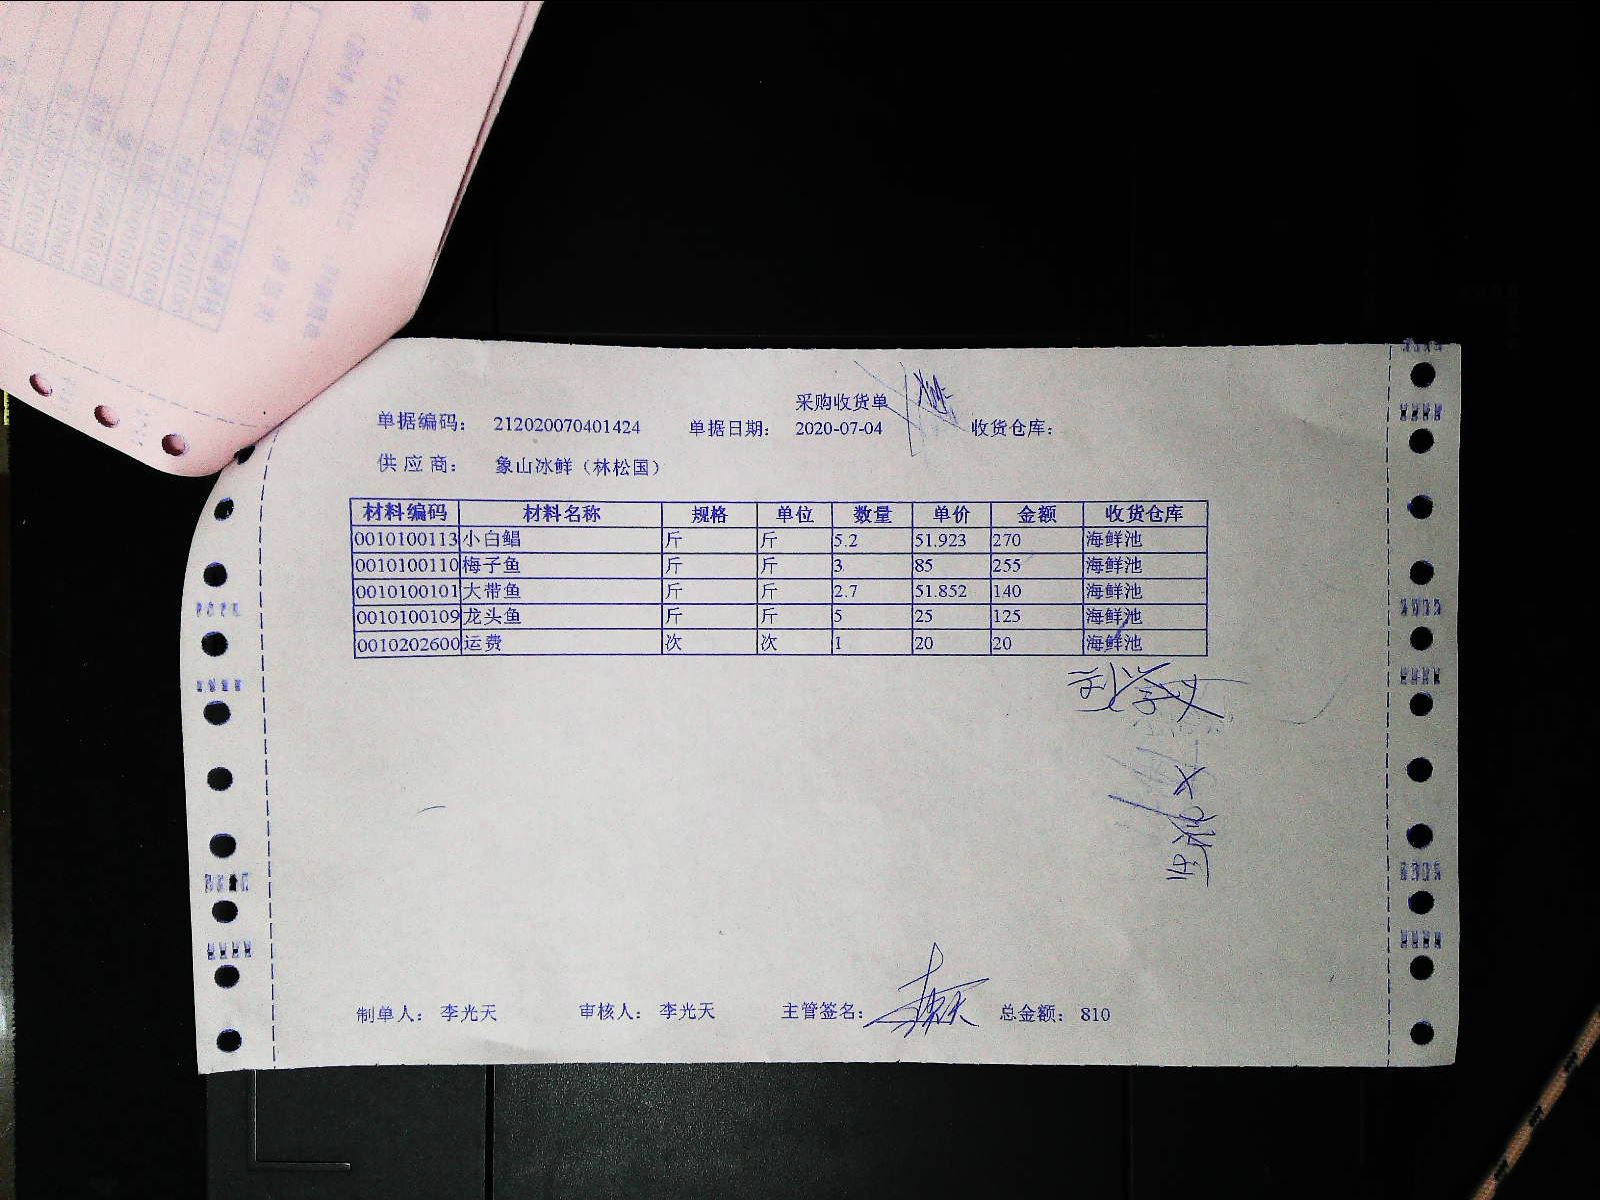 采购收货单
单据编码： 212020070401424 单据日期： 2020-07-04 收货仓库：
供应商： 象山冰鲜（林松国）
材料编码 材料名称 规格 单位 数量 单价 金额 收货仓库
0010100113 小白鲳 斤 斤 5.2 51.923 270 海鲜池
0010100110 梅子鱼 斤 斤 3 85 255 海鲜池
0010100101 大带鱼 斤 斤 2.7 51.852 140 海鲜池
0010100109 龙头鱼 斤 斤 5 25 125 海鲜池
0010202600 运费 次 次 1 20 20 海鲜池
制单人： 李光天 审核人： 李光天 主管签名： 总金额： 810